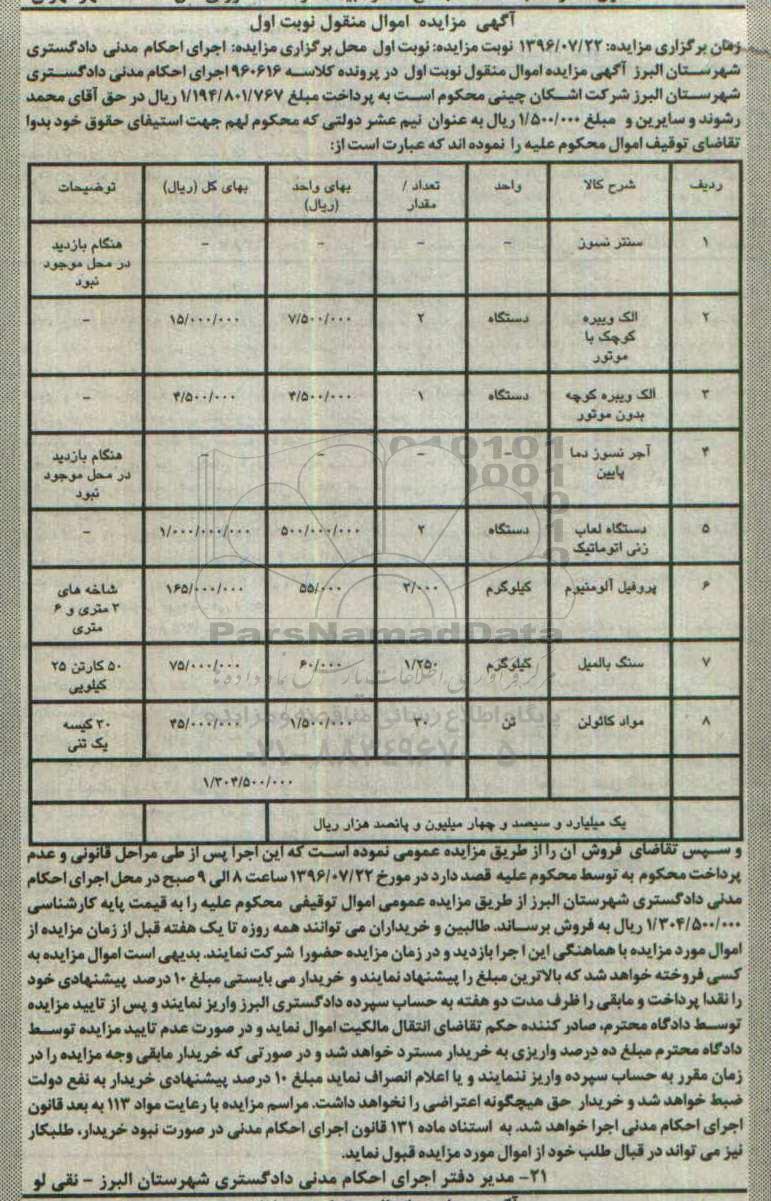 آگهی مزایده اموال منقول نوبت اول
زمان برگزاری مزایده: ۱۳۹۶/۰۷/۲۲ نوبت مزایده: نوبت اول محل برگزاری مزایده: اجرای احکام مدنی دادگستری
شهرستان البرز آگهی مزایده اموال منقول نوبت اول در پرونده کلاسه ۹۶۰۶۱۶ اجرای احکام مدنی دادگستری
شهرستان البرز شرکت اشکان چینی محکوم است به پرداخت مبلغ ۱/۱۹۴/۸۰۱/۷۶۷ ریال در حق آقای محمد
رشوند و سایرین و مبلغ ۱/۵۰۰/۰۰۰ ریال به عنوان نیم عشر دولتی که محکوم لهم جهت استیفای حقوق خود بدوا
تقاضای توقیف اموال محکوم علیه را نموده اند که عبارت است از:
ردیف شرح کالا واحد تعداد / مقدار بهای واحد (ریال) بهای کل (ریال) توضیحات
۱ سنتر نسوز – – – – هنگام بازدید در محل موجود نبود
۲ الک ویبره کوچک با موتور دستگاه ۲ ۷/۵۰۰/۰۰۰ ۱۵/۰۰۰/۰۰۰ –
۳ الک ویبره کوچه بدون موتور دستگاه ۱ ۴/۵۰۰/۰۰۰ ۴/۵۰۰/۰۰۰ –
۴ آجر نسوز دما پایین – – – – هنگام بازدید در محل موجود نبود
۵ دستگاه لعاب زنی اتوماتیک دستگاه ۲ ۵۰۰/۰۰۰/۰۰۰ ۱/۰۰۰/۰۰۰/۰۰۰ –
۶ پروفیل آلومنیوم کیلوگرم ۳/۰۰۰ ۵۵/۰۰۰ ۱۶۵/۰۰۰/۰۰۰ شاخه های ۳ متری و ۶ متری
۷ سنگ بالمیل کیلوگرم ۱/۲۵۰ ۶۰/۰۰۰ ۷۵/۰۰۰/۰۰۰ ۵۰ کارتن ۲۵ کیلویی
۸ مواد کائولن تن ۳۰ ۱/۵۰۰/۰۰۰ ۴۵/۰۰۰/۰۰۰ ۳۰ کیسه یک تنی
۱/۳۰۴/۵۰۰/۰۰۰
یک میلیارد و سیصد و چهار میلیون و پانصد هزار ریال
و سپس تقاضای فروش آن را از طریق مزایده عمومی نموده است که این اجرا پس از طی مراحل قانونی و عدم
پرداخت محکوم به توسط محکوم علیه قصد دارد در مورخ ۱۳۹۶/۰۷/۲۲ ساعت ۸ الی ۹ صبح در محل اجرای احکام
مدنی دادگستری شهرستان البرز از طریق مزایده عمومی اموال توقیفی محکوم علیه را به قیمت پایه کارشناسی
۱/۳۰۴/۵۰۰/۰۰۰ ریال به فروش برساند. طالبین و خریداران می توانند همه روزه تا یک هفته قبل از زمان مزایده از
اموال مورد مزایده با هماهنگی این اجرا بازدید و در زمان مزایده حضورا شرکت نمایند. بدیهی است اموال مزایده به
کسی فروخته خواهد شد که بالاترین مبلغ را پیشنهاد نمایند و خریدار می بایستی مبلغ ۱۰ درصد پیشنهادی خود
را نقدا پرداخت و مابقی را ظرف مدت دو هفته به حساب سپرده دادگستری البرز واریز نمایند و پس از تایید مزایده
توسط دادگاه محترم، صادر کننده حکم تقاضای انتقال مالکیت اموال نماید و در صورت عدم تایید مزایده توسط
دادگاه محترم مبلغ ده درصد واریزی به خریدار مسترد خواهد شد و در صورتی که خریدار مابقی وجه مزایده را در
زمان مقرر به حساب سپرده واریز ننمایند و یا اعلام انصراف نماید مبلغ ۱۰ درصد پیشنهادی خریدار به نفع دولت
ضبط خواهد شد و خریدار حق هیچگونه اعتراضی را نخواهد داشت. مراسم مزایده با رعایت مواد ۱۱۳ به بعد قانون
اجرای احکام مدنی اجرا خواهد شد. به استناد ماده ۱۳۱ قانون اجرای احکام مدنی در صورت نبود خریدار، طلبکار
نیز می تواند در قبال طلب خود از اموال مورد مزایده قبول نماید.
۲۱- مدیر دفتر اجرای احکام مدنی دادگستری شهرستان البرز - نقی لو
ParsNamadData